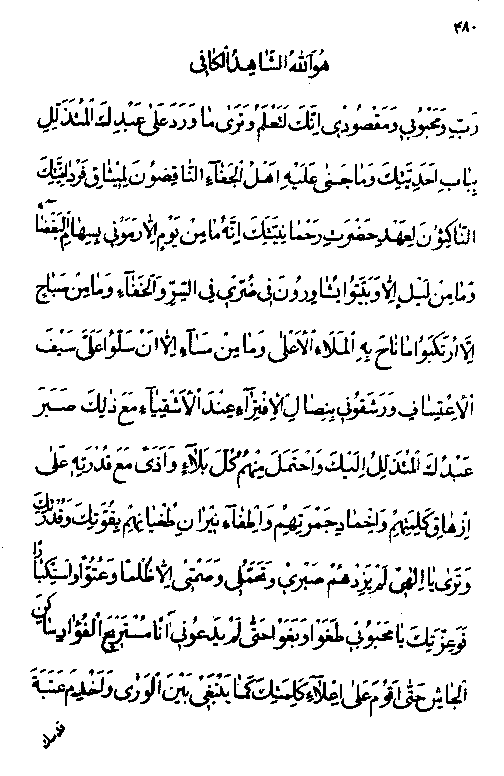 ۴۸۰
هو الله الشاهد الکافی
ربّ و محبوبی و مقصودی انّک لتعلم و تری ما ورد علی عبدک المتذلّل
بباب احدیّتک و ما جنی علیه اهل الجفاء الناقضون لمیثاق فردانیّتک
الناکثون لعهد حضرت رحمانیّتک انّه ما من یوم الّا رمونی بسهام البغضاء
و ما من لیل الّا و بیّتوا یشاورون فی ضرّی فی السرّ و الخفاء و ما من صباح
الّا ارتکبوا ما ناح به الملاء الاعلی و ما من مساء الّا ان سلّوا علیّ سیف
الاعتساف و رشقونی بنصال الافتراء عند الاشقیاء مع ذلک صبر
عبدک المتذلّل الیک و احتمل منهم کلّ بلاء و اذی مع قدرته علی
ازهاق کلمتهم و اخماد جمرتهم و اطفاء نیران طغیانهم بقوّتک و قدرتک
و تری یا الهی لم یزدهم صبری و تحمّلی و صمتی الّا ظلما و عتوّا و استکبارا
فوعزّتک یا محبوبی طغوا و بغوا حتّی لم یدعونی آنا مستریح الفؤاد ساکن
الجاش حتّی اقوم علی اعلاء کلمتک کما ینبغی بین الوری و اخدم عتبة
قدسک